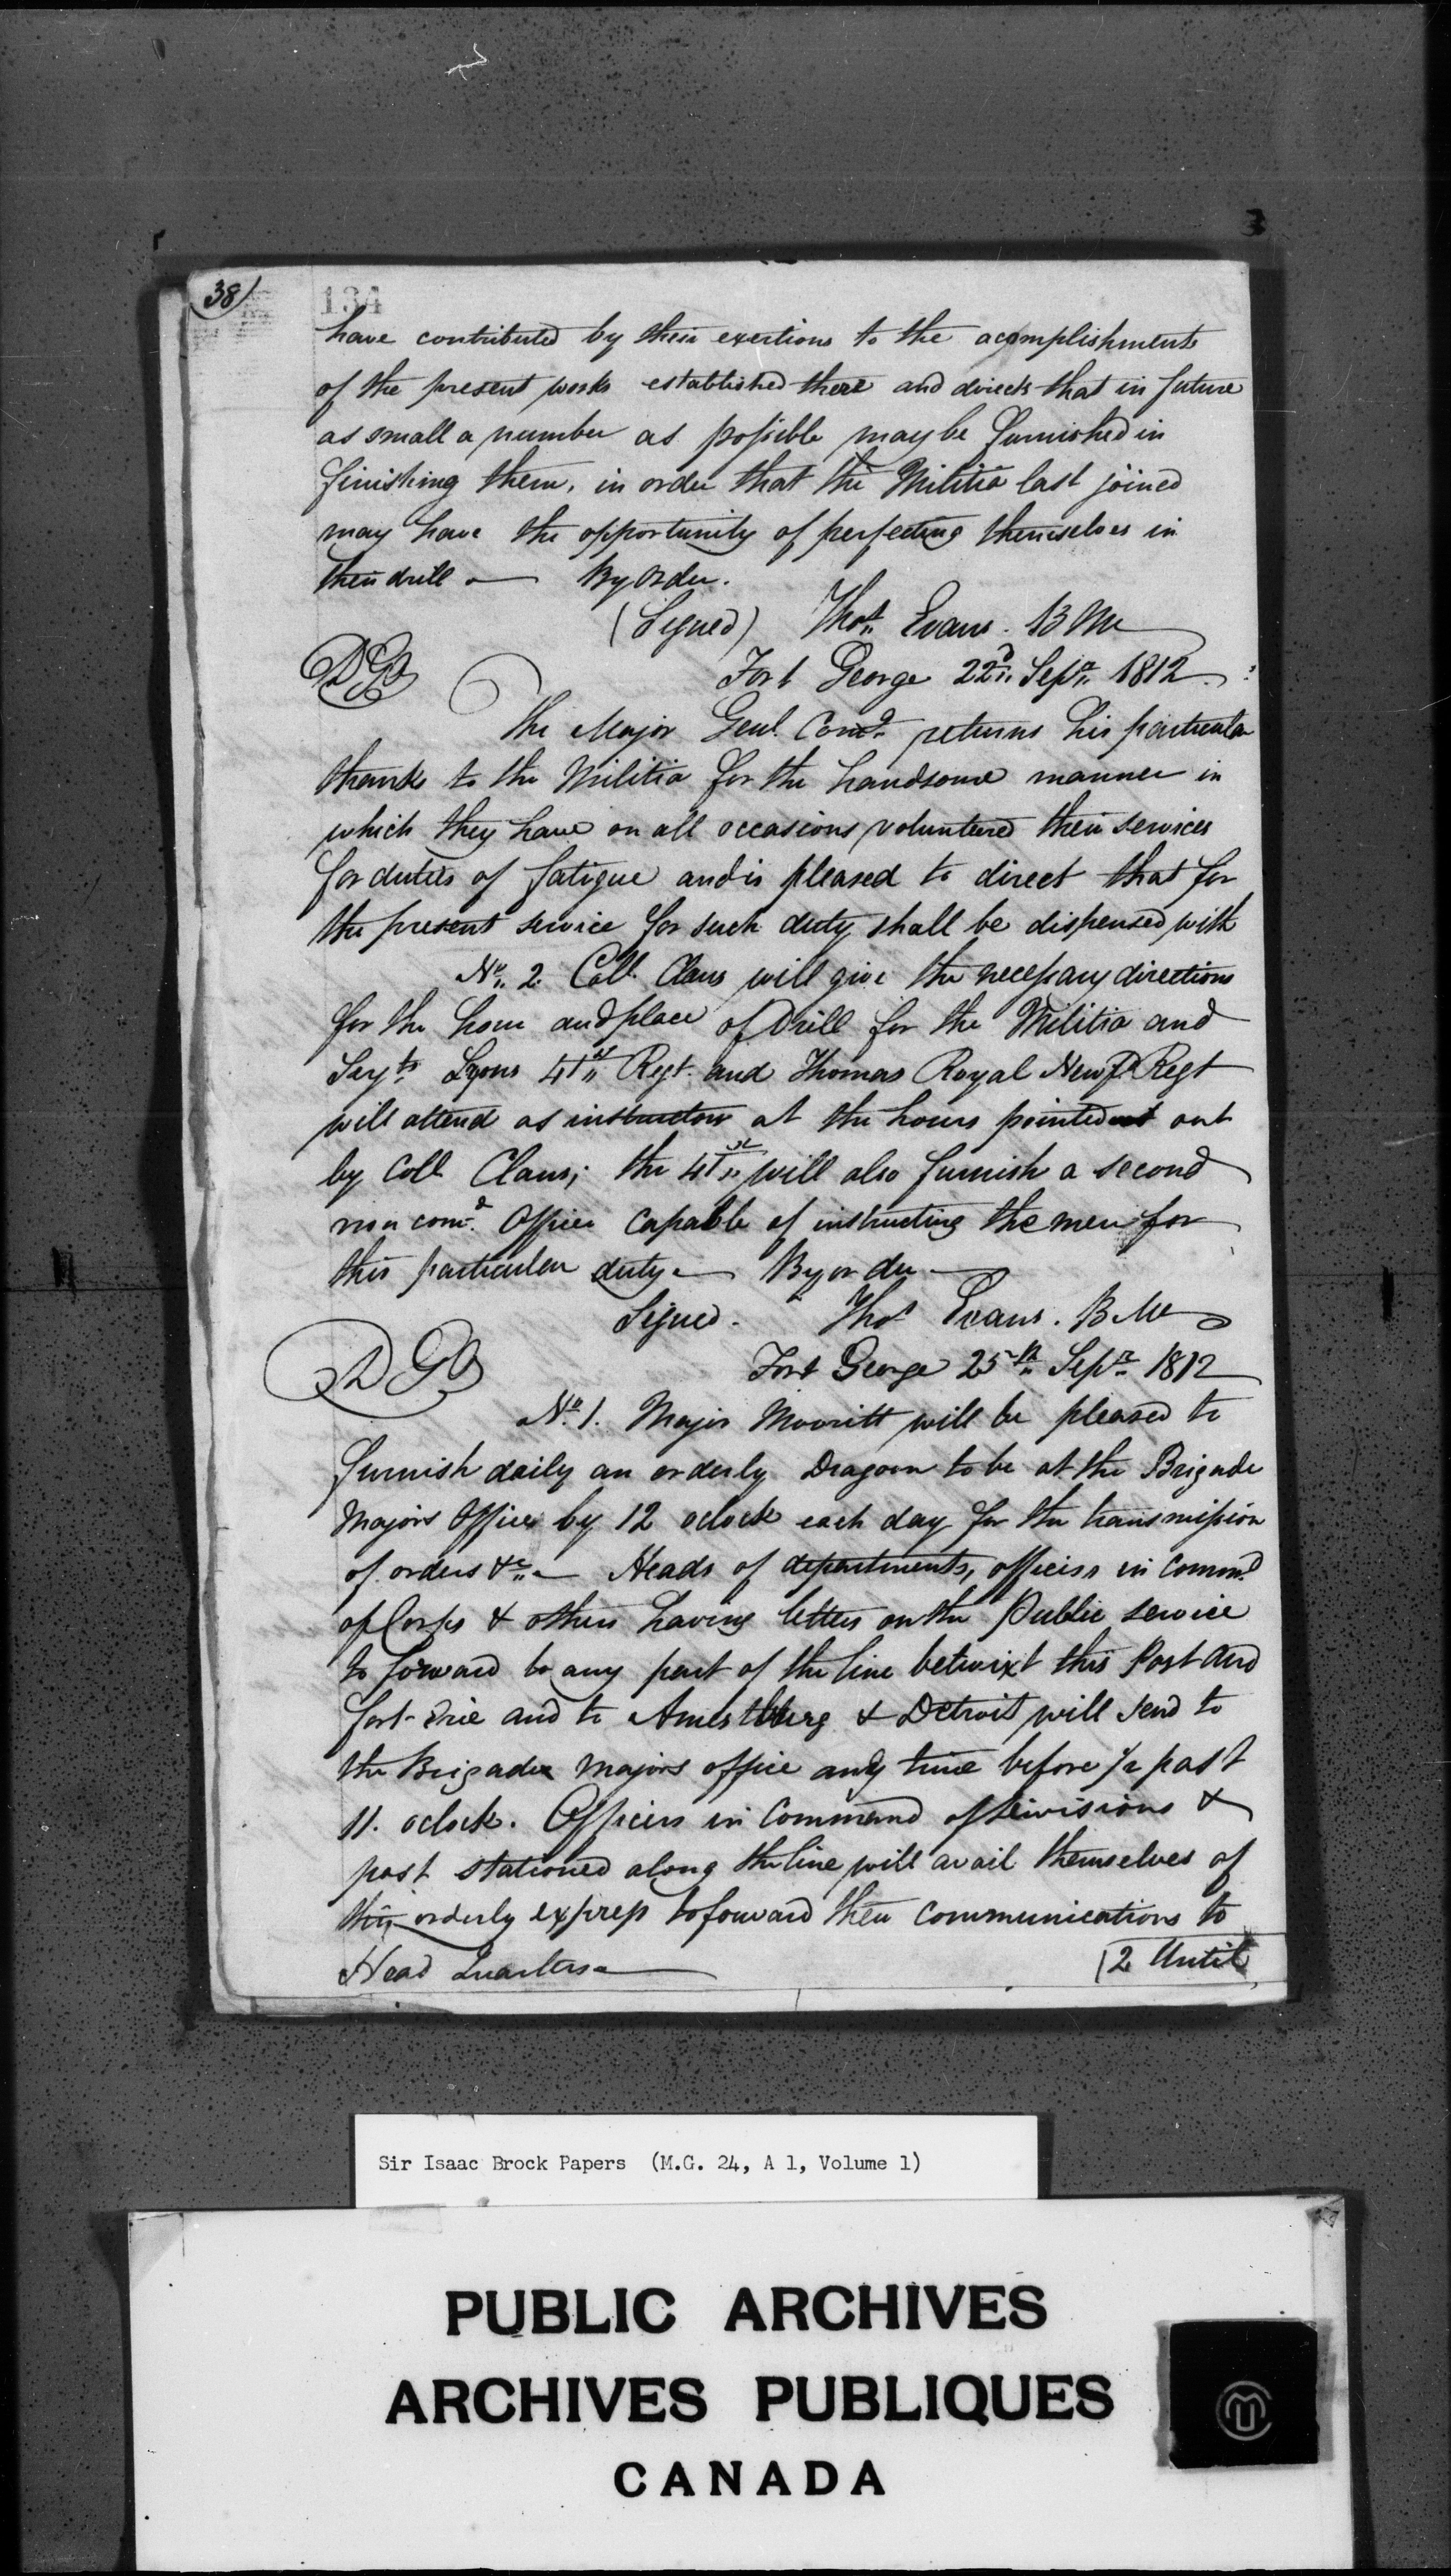 38
134
have contributed by their exertions to the acomplishments
of the present works established there and directs that in future
as small a number as possible may be furnished in
finishing them, in order that the Militia last joined
may have the opportunity of perfecting themselves in
their drill — By Order.
(Signed) Thos Evans. B M
DGO Fort George 22d Sepr 1812
The Major Genl. Comd returns his particular
thanks to the Militia for the handsome manner in
which they have on all occasions voluntered their services
for duties of fatigue and is pleased to direct that for
the present service for such duty shall be dispensed with
No 2. Coll. Claus will give the necessary directions
for the hour and place of Drill for the Militia and
Serjts Lyons 41st Regt. and Thomas Royal Newfd Regt
will attend as instructors at the hours pointed out
by Coll Claus; the 41st will also furnish a second
non comd. Officer capable of instructing the men for
this particular duty — By order —
Signed. Thos Evans. B M
DGO Fort George 25th Sepr 1812
No 1. Major Merritt will be pleased to
furnish daily an orderly Dragoon to be at the Brigade
Majors Office by 12 oclock each day for the transmission
of orders &c — Heads of departments, officers in Commd
of Corps & others having letters on the Public service
to forward to any part of the line betwixt this Post and
fort-Erie and to Amestburg & Detroit will send to
the Brigade Majors office any time before 1/2 past
11. oclock. Officers in Command of Divisions &
post stationed along the line will avail themselves of
this orderly express to forward their communications to
Head Quarters —
2 Until
Sir Isaac Brock Papers (M.G. 24, A 1, Volume 1)
PUBLIC ARCHIVES
ARCHIVES PUBLIQUES
CANADA